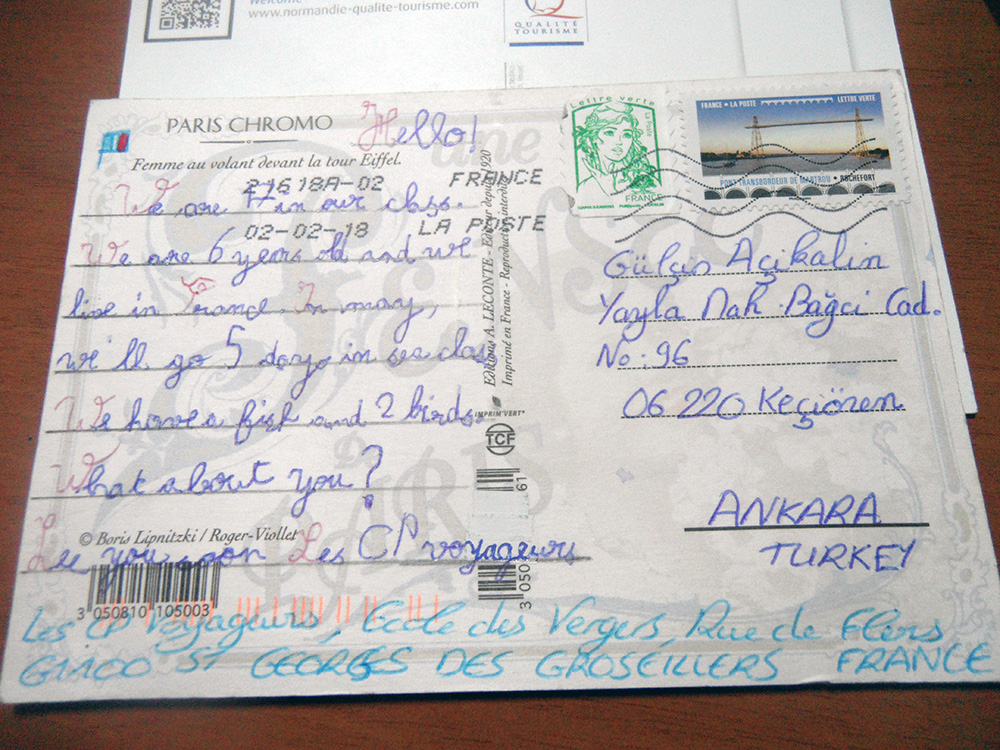 Welcome
www.normandie-qualite-tourisme.com
QUALITÉ
TOURISME
PARIS CHROMO
Femme au volant devant la tour Eiffel.
Hello!
21618A-02 FRANCE
02-02-18 LA POSTE
We are 17 in our class.
We are 6 years old and we
live in France. In may,
we'll go 5 days in sea class
We have a fish and 2 birds.
What about you?
© Boris Lipnitzki / Roger-Viollet
See you soon Les CP voyageurs
3 050810 105003
Editions A. LECONTE - Editeur depuis 1920
Imprimé en France - Reproduction interdite
IMPRIM'VERT
TCF
61
3 050
Lettre verte
La Poste
FRANCE
FRANCE • LA POSTE
LETTRE VERTE
PONT TRANSBORDEUR DE MARTROU • ROCHEFORT
Gülçin Açikalin
Yayla Mah. Bağci Cad.
No: 96
06 220 Keçiören
ANKARA
TURKEY
Les CP Voyageurs, Ecole des Vergers, Rue de Flers
61100 St GEORGES DES GROSEILLERS FRANCE